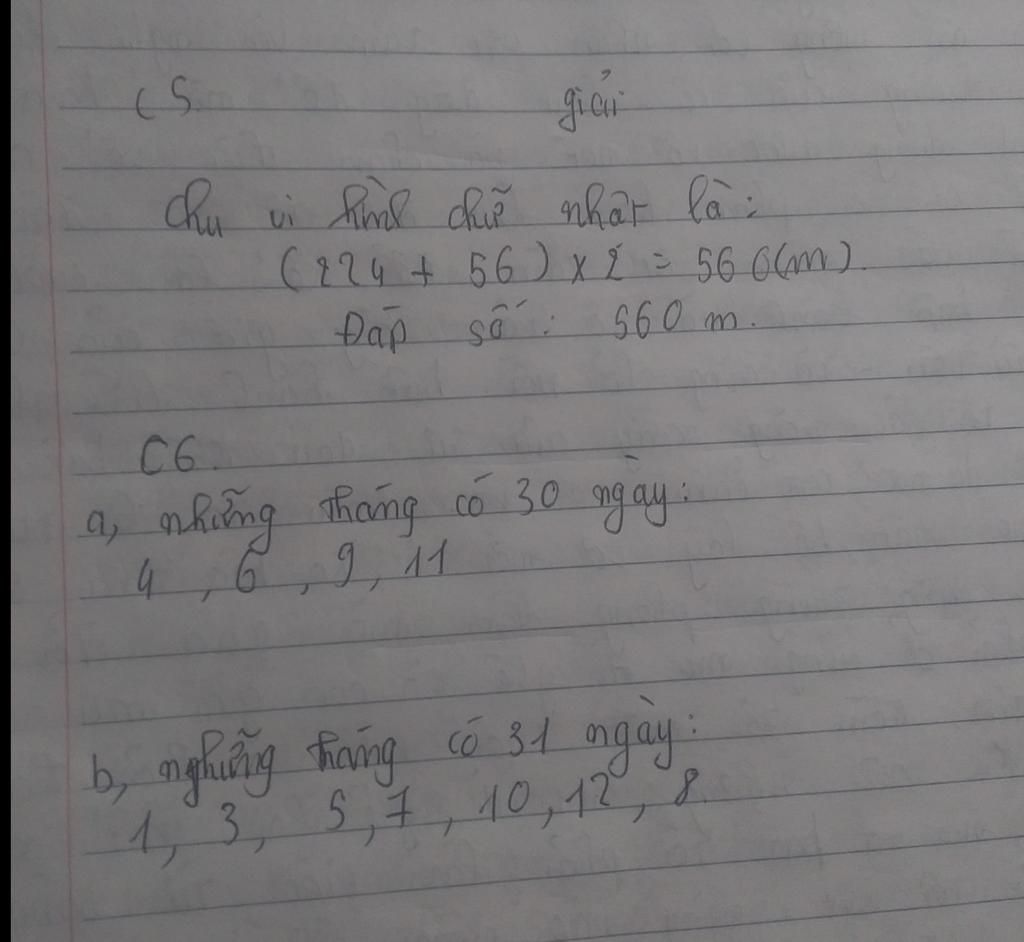 C5. giải
Chu vi hình chữ nhật là:
(224 + 56) x 2 = 560(m).
Đáp số: 560 m.
C6.
a, những tháng có 30 ngày:
4, 6, 9, 11
b, nghững tháng có 31 ngày:
1, 3, 5, 7, 10, 12, 8.